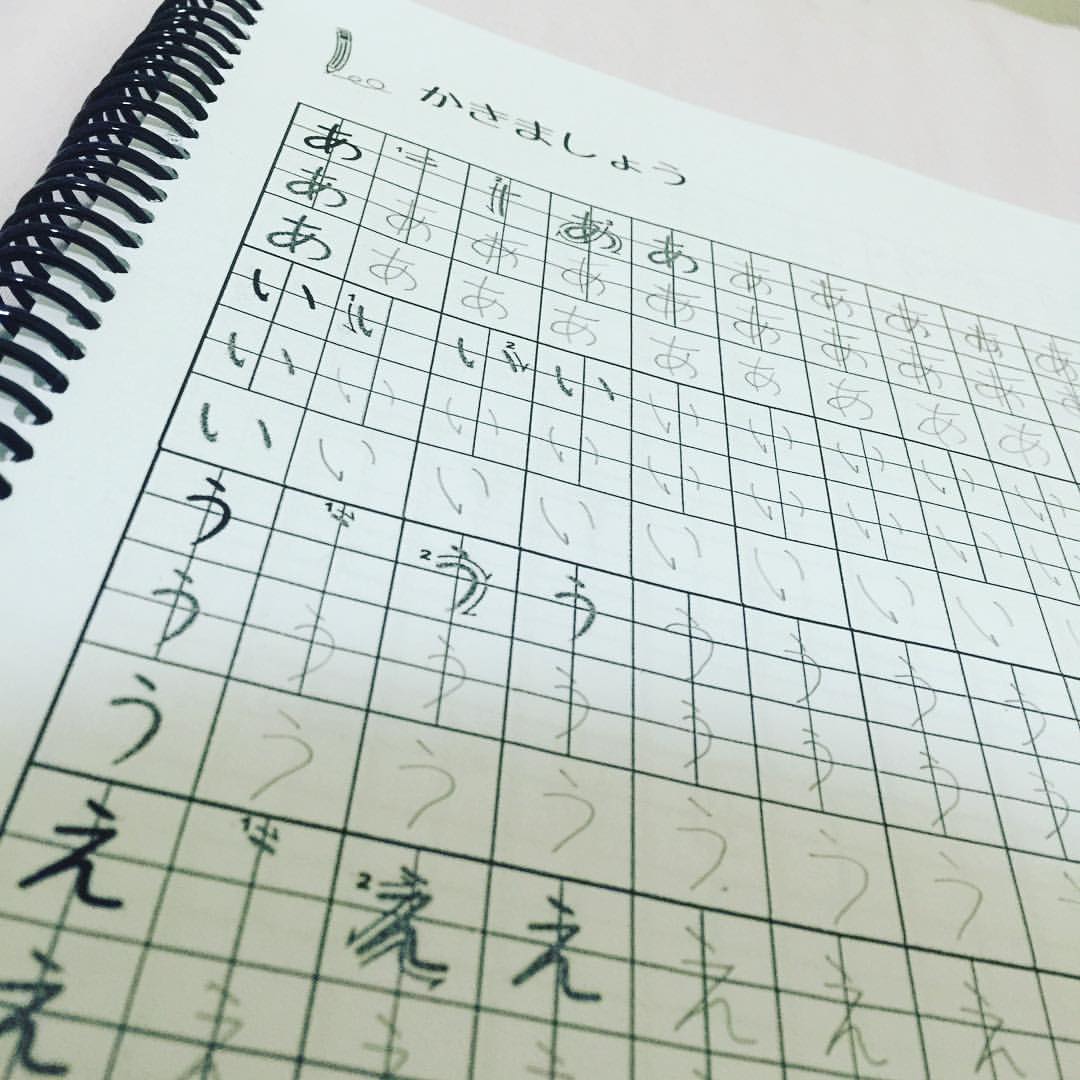 かきましょう
あ 1 2 あ あ あ あ あ あ あ
あ あ あ あ あ あ あ あ あ あ
あ あ あ あ あ あ あ あ あ
い 1 い2 い い い い い い
い い い い い い い い い
い い い い い い い い
う 1 2う う う う う う
う う う う う う う う
う う う う う う う
え 1 2え え え え え
え え